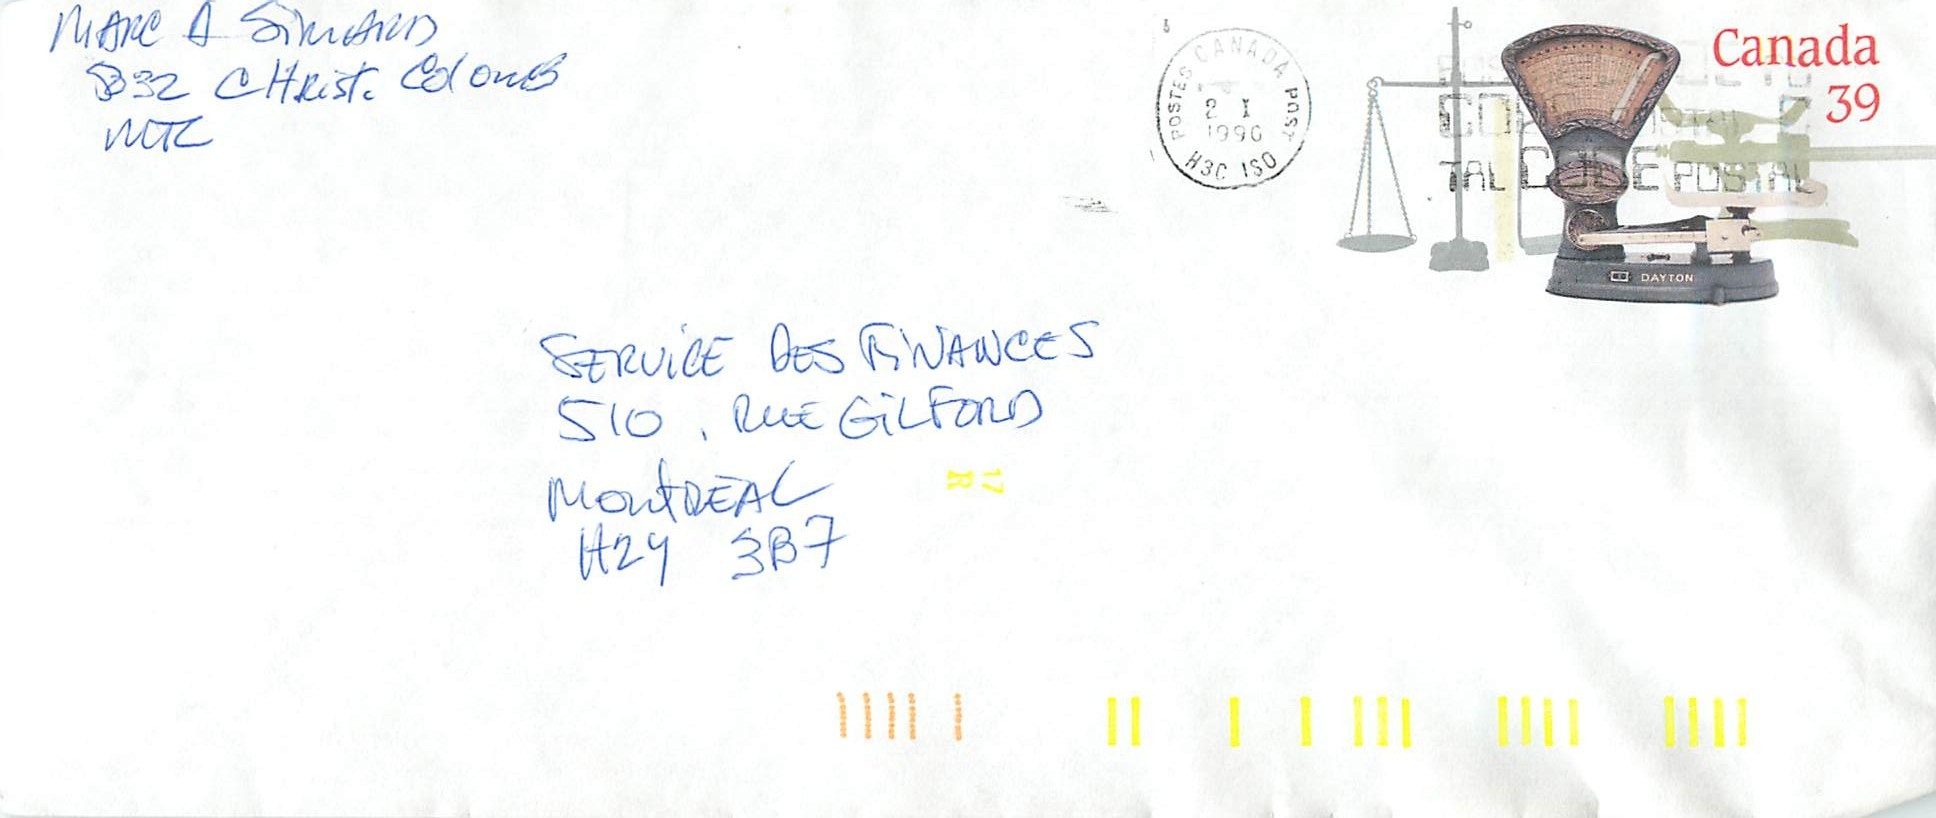 MARC A SIMARD
832 CHRIST. Colomb
MTL
POSTES CANADA POST
2 I
1990
H3C 1S0
CODE POSTAL
TAL CODE POSTAL
Canada
39
DAYTON
SERVICE DES FINANCES
510, RUE GILFORD
MONTREAL
H2Y 3B7
17
R